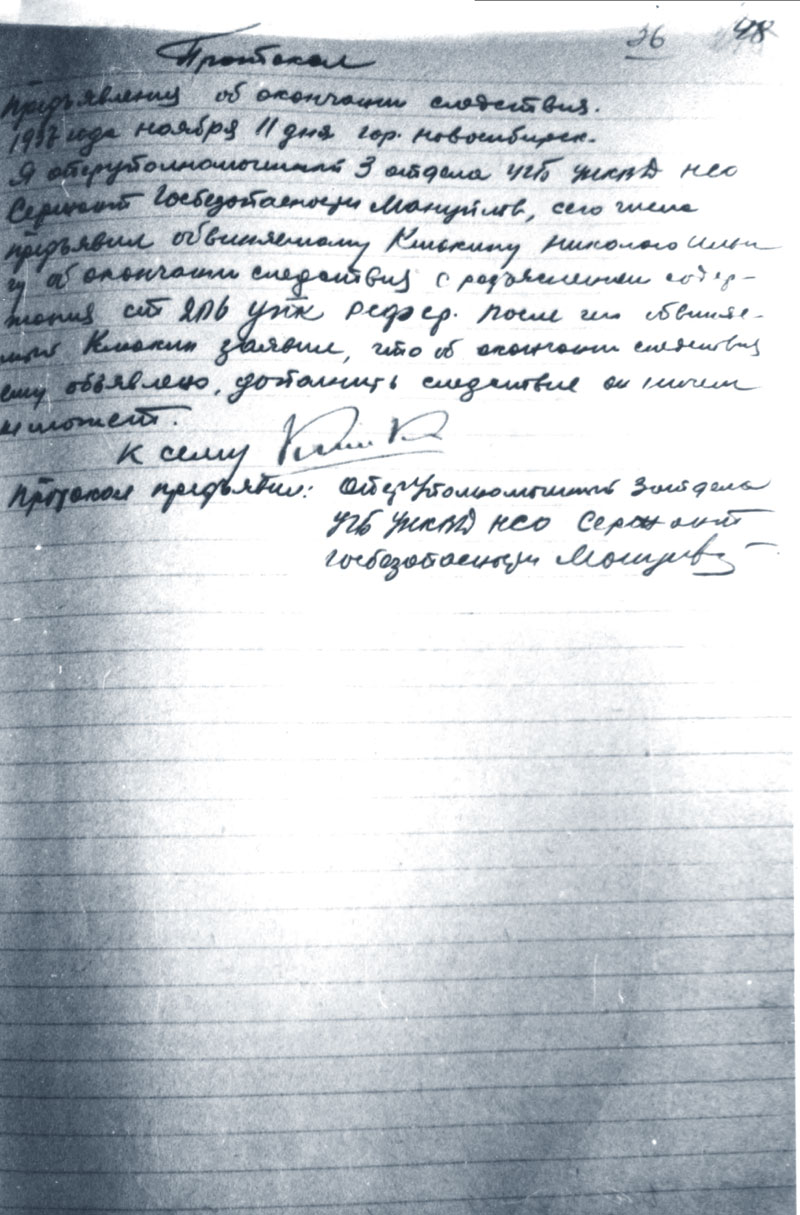 36 48
Протокол
Предъявления об окончании следствия.
1937 года ноября 11 дня гор. Новосибирск.
Я оперуполномоченный 3 отдела УГБ УНКВД НСО
Сержант Госбезопасности Мануйлов, сего числа
предъявил обвиняемому Клюкину Николаю Ильи
чу об окончании следствия с разъяснением содер-
жания ст 206 УПК РСФСР. После чего обвиняе-
мый Клюкин заявил, что об окончании следствия
ему объявлено, дополнить следствие он ничем
не может.
К сему
Протокол предъявил: Оперуполномоченный 3 отдела
УГБ УНКВД НСО Сержант
госбезопасности Мануйлов